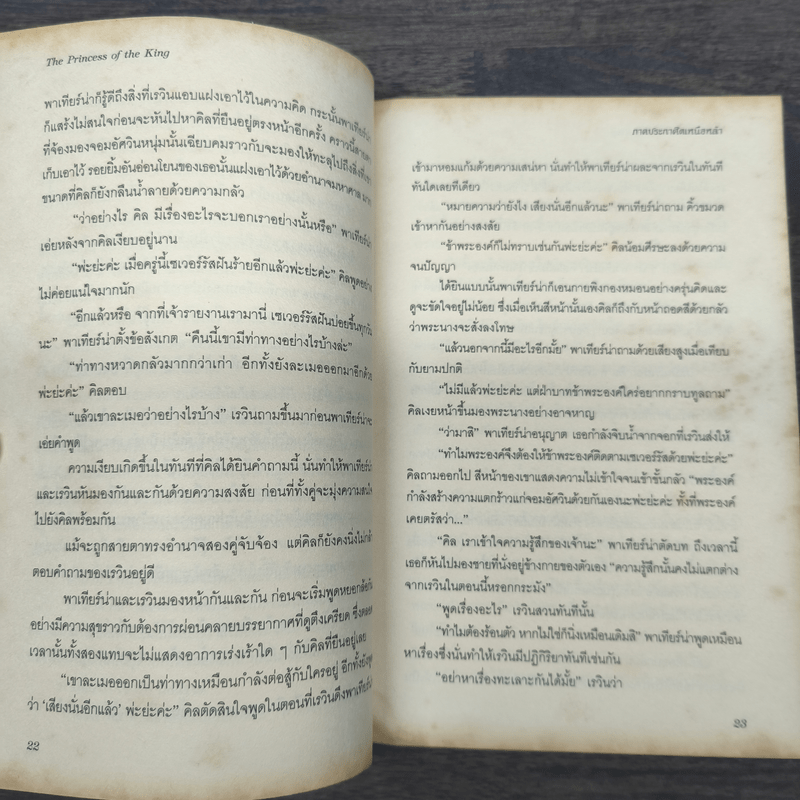 The Princess of the King
พาเทียร์น่าก็รู้ดีถึงสิ่งที่เรวินแอบแฝงเอาไว้ในความคิด กระนั้นพาเทียร์น่า
ก็แสร้งไม่สนใจก่อนจะหันไปหาคิลที่ยืนอยู่ตรงหน้าอีกครั้ง คราวนี้สายตา
ที่จ้องมองจอมอัศวินหนุ่มนั้นเฉียบคมราวกับจะมองให้ทะลุไปถึงสิ่งที่
เก็บเอาไว้ รอยยิ้มอันอ่อนโยนของเธอนั้นแฝงเอาไว้ด้วยอำนาจมหาศาล มาก
ขนาดที่คิลก็ยังกลืนน้ำลายด้วยความกลัว
“ว่าอย่างไร คิล มีเรื่องอะไรจะบอกเราอย่างนั้นหรือ” พาเทียร์น่า
เอ่ยหลังจากคิลเงียบอยู่นาน
“พ่ะย่ะค่ะ เมื่อครู่นี้เซเวอร์รัสฝันร้ายอีกแล้วพ่ะย่ะค่ะ” คิลพูดอย่าง
ไม่ค่อยแน่ใจมากนัก
“อีกแล้วหรือ จากที่เจ้ารายงานเรามานี่ เซเวอร์รัสฝันบ่อยขึ้นทุกวัน
นะ” พาเทียร์น่าตั้งข้อสังเกต “คืนนี้เขามีท่าทางอย่างไรบ้างล่ะ”
“ท่าทางหวาดกลัวมากกว่าเก่า อีกทั้งยังละเมอออกมาอีกด้วย
พ่ะย่ะค่ะ” คิลตอบ
“แล้วเขาละเมอว่าอย่างไรบ้าง” เรวินถามขึ้นมาก่อนพาเทียร์น่าจะ
เอ่ยคำพูด
ความเงียบเกิดขึ้นในทันทีที่คิลได้ยินคำถามนี้ นั่นทำให้พาเทียร์น่า
และเรวินหันมองกันและกันด้วยความสงสัย ก่อนที่ทั้งคู่จะมุ่งความสนใจ
ไปยังคิลพร้อมกัน
แม้จะถูกสายตาทรงอำนาจสองคู่จับจ้อง แต่คิลก็ยังคงนิ่งไม่กล้า
ตอบคำถามของเรวินอยู่ดี
พาเทียร์น่าและเรวินมองหน้ากันและกัน ก่อนจะเริ่มพูดหยอกล้อกัน
อย่างมีความสุขราวกับต้องการผ่อนคลายบรรยากาศที่ดูตึงเครียด ซึ่งตลอด
เวลานั้นทั้งสองแทบจะไม่แสดงอาการเร่งเร้าใด ๆ กับคิลที่ยืนอยู่เลย
“เขาละเมอออกเป็นท่าทางเหมือนกำลังต่อสู้กับใครอยู่ อีกทั้งยังพูด
ว่า ‘เสียงนั่นอีกแล้ว’ พ่ะย่ะค่ะ” คิลตัดสินใจพูดในตอนที่เรวินดึงพาเทียร์น่า
22
ภาคประกาศิตเหนือหล้า
เข้ามาหอมแก้มด้วยความเสน่หา นั่นทำให้พาเทียร์น่าผละจากเรวินในทันที
ทันใดเลยทีเดียว
“หมายความว่ายังไง เสียงนั่นอีกแล้วนะ” พาเทียร์น่าถาม คิ้วขมวด
เข้าหากันอย่างสงสัย
“ข้าพระองค์ก็ไม่ทราบเช่นกันพ่ะย่ะค่ะ” คิลน้อมศีรษะลงด้วยความ
จนปัญญา
ได้ยินแบบนั้นพาเทียร์น่าก็เอนกายพิงกองหมอนอย่างครุ่นคิดและ
ดูจะขัดใจอยู่ไม่น้อย ซึ่งเมื่อเห็นสีหน้านั้นเองคิลก็ถึงกับหน้าถอดสีด้วยกลัว
ว่าพระนางจะสั่งลงโทษ
“แล้วนอกจากนี้มีอะไรอีกมั้ย” พาเทียร์น่าถามด้วยเสียงสูงเมื่อเทียบ
กับยามปกติ
“ไม่มีแล้วพ่ะย่ะค่ะ แต่ฝ่าบาทข้าพระองค์ใคร่อยากกราบทูลถาม”
คิลเงยหน้าขึ้นมองพระนางอย่างอาจหาญ
“ว่ามาสิ” พาเทียร์น่าอนุญาต เธอกำลังจิบน้ำจากจอกที่เรวินส่งให้
“ทำไมพระองค์จึงต้องให้ข้าพระองค์ติดตามเซเวอร์รัสด้วยพ่ะย่ะค่ะ”
คิลถามออกไป สีหน้าของเขาแสดงความไม่เข้าใจจนเข้าขั้นกลัว “พระองค์
กำลังสร้างความแตกร้าวแก่จอมอัศวินด้วยกันเองนะพ่ะย่ะค่ะ ทั้งที่พระองค์
เคยตรัสว่า...”
“คิล เราเข้าใจความรู้สึกของเจ้านะ” พาเทียร์น่าตัดบท ถึงเวลานี้
เธอก็หันไปมองชายที่นั่งอยู่ข้างกายของตัวเอง “ความรู้สึกนั้นคงไม่แตกต่าง
จากเรวินในตอนนี้หรอกกระมัง”
“พูดเรื่องอะไร” เรวินสวนทันทีนั้น
“ทำไมต้องร้อนตัว หากไม่ใช่ก็นิ่งเหมือนเดิมสิ” พาเทียร์น่าพูดเหมือน
หาเรื่องซึ่งนั่นทำให้เรวินมีปฏิกิริยาทันทีเช่นกัน
“อย่าหาเรื่องทะเลาะกันได้มั้ย” เรวินว่า
23